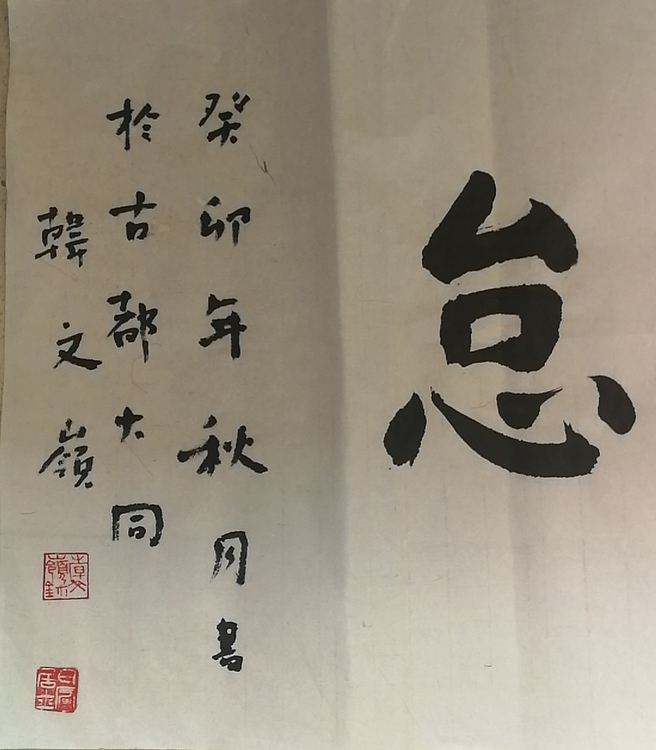 怠
癸卯年秋月書
於古都大同
韓文嶺